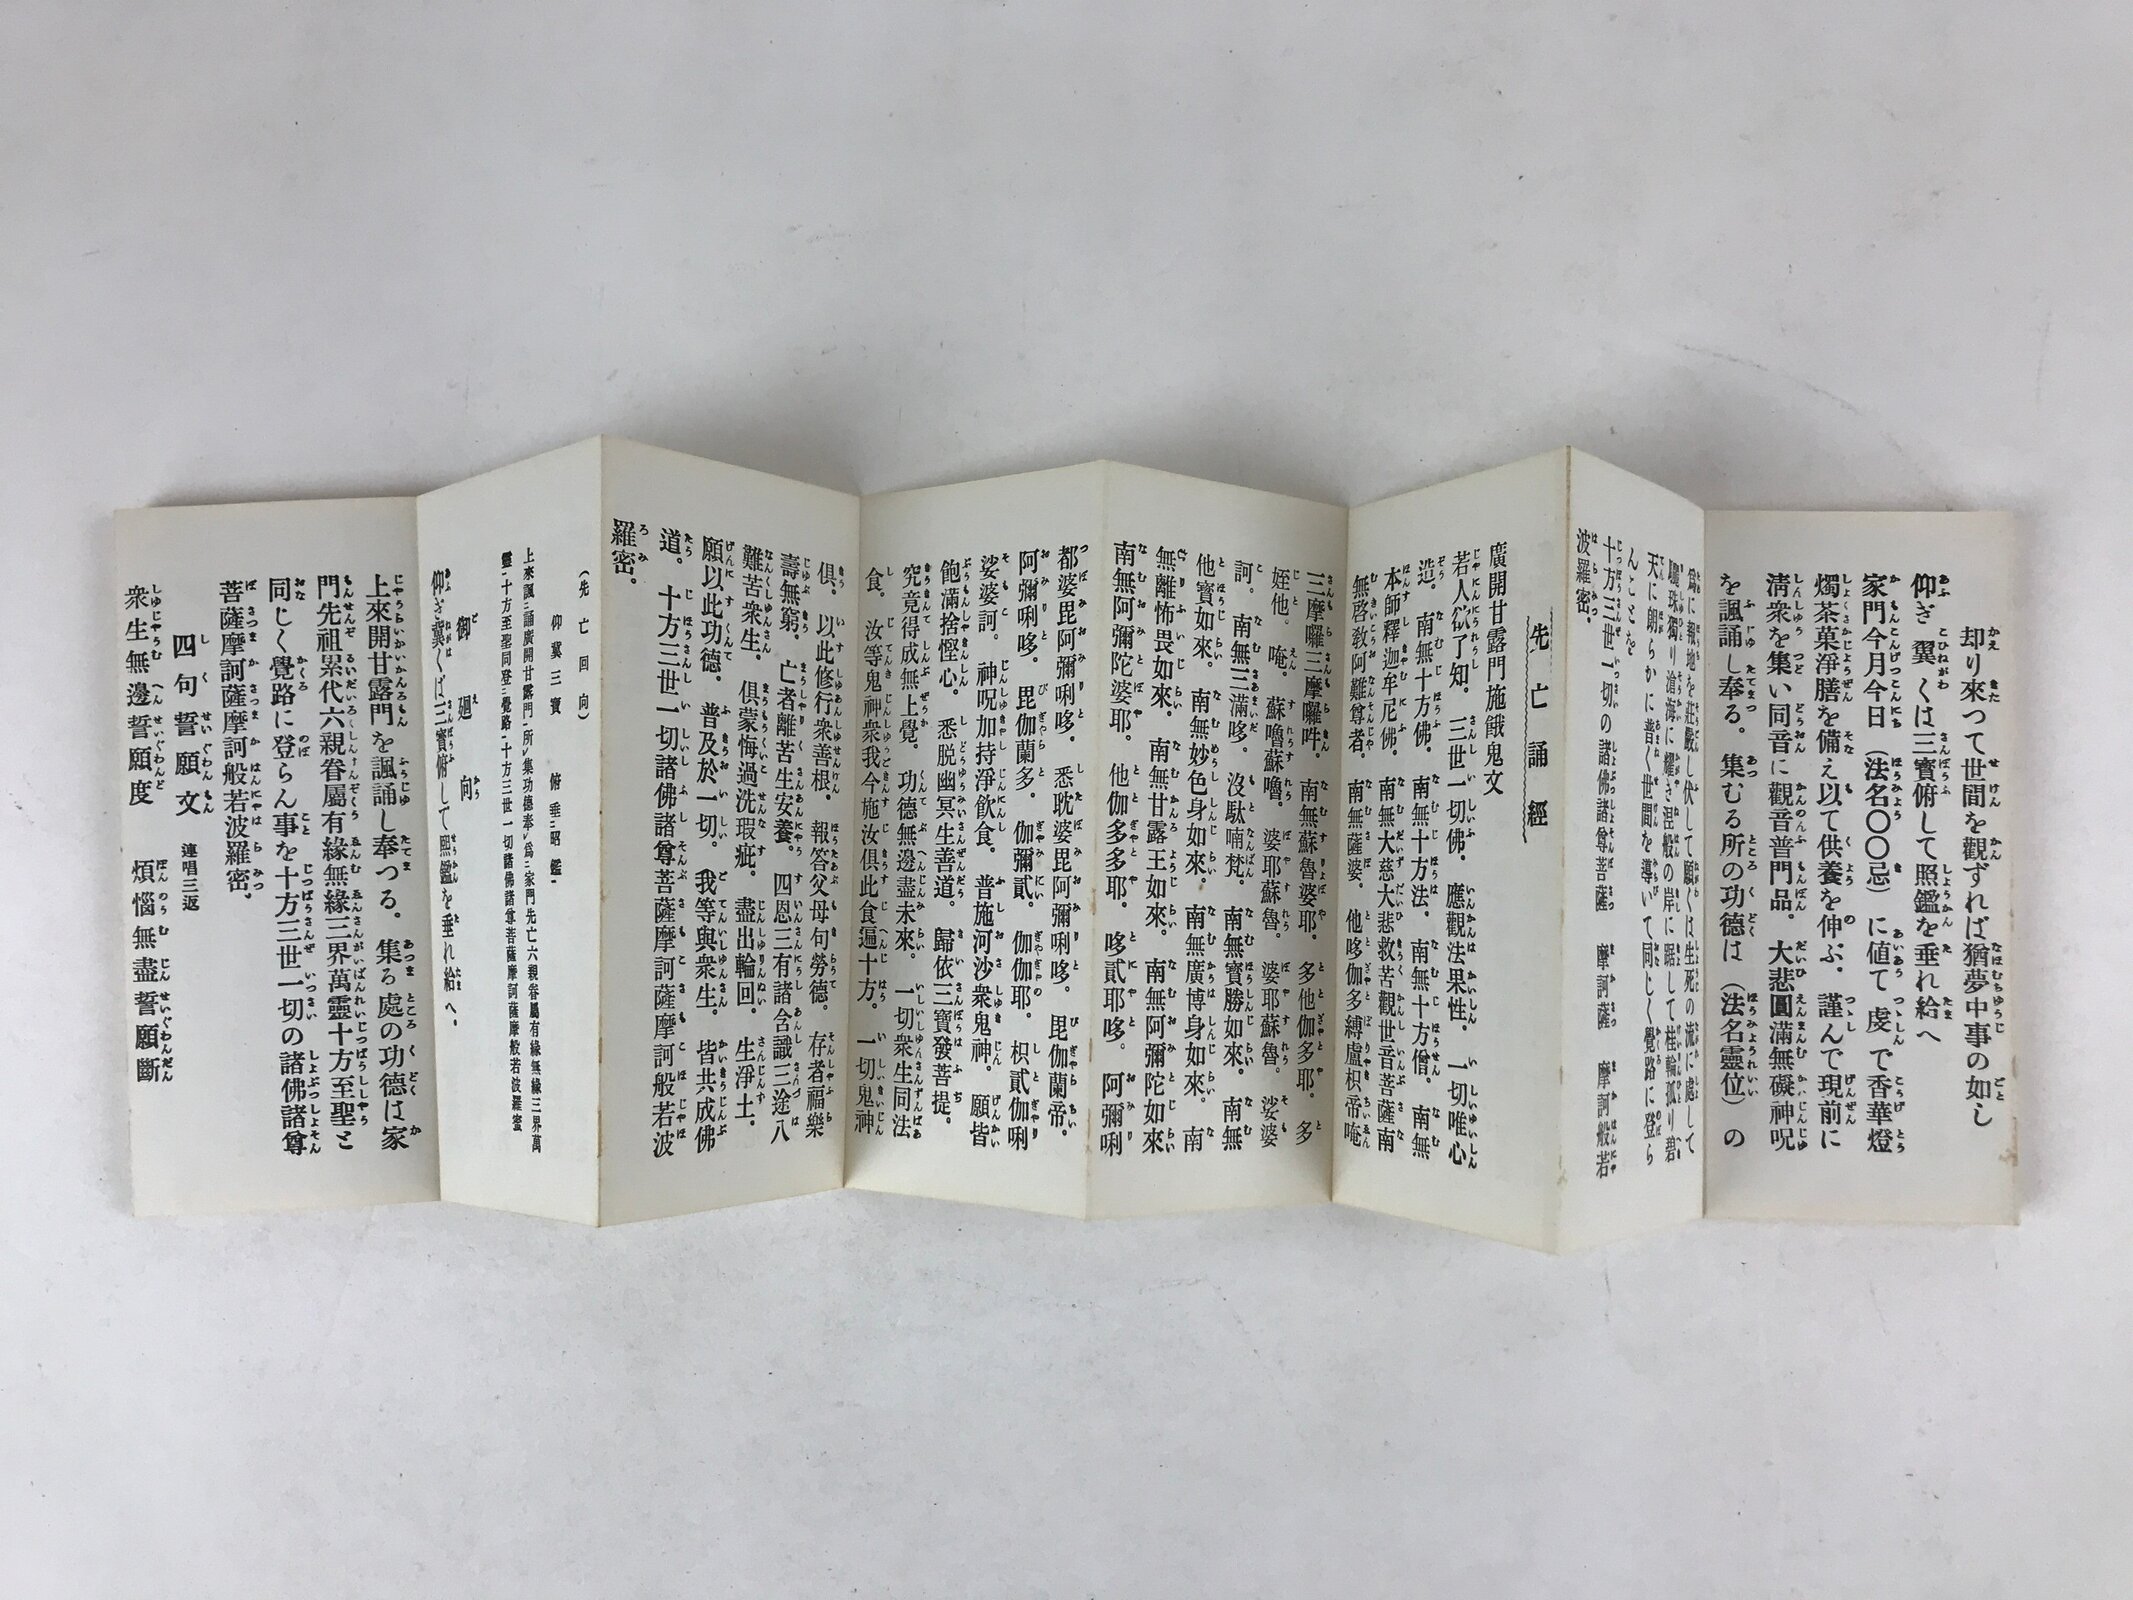 却り來つて世間を觀ずれば猶夢中事の如し
仰ぎ翼くは三寳俯して照鑑を垂れ給へ
家門今月今日(法名〇〇忌)に値て虔で香華燈
燭茶菓淨膳を備え以て供養を伸ぶ。謹んで現前に
淸衆を集い同音に觀音普門品。大悲圓滿無礙神呪
を諷誦し奉る。集むる所の功德は(法名靈位)の
爲に報地を莊嚴し伏して願くは生死の流に處して
驪珠獨り滄海に耀き涅般の岸に踞して桂輪孤り碧
天に朗らかに普く世間を導いて同じく覺路に登ら
んことを
十方三世一切の諸佛諸尊菩薩 摩訶薩 摩訶般若
波羅密。
先亡誦經
廣開甘露門施餓鬼文
若人欲了知。三世一切佛。應觀法果性。一切唯心
造。南無十方佛。南無十方法。南無十方僧。南無
本師釋迦牟尼佛。南無大慈大悲救苦觀世音菩薩南
無啓敎阿難尊者。南無薩婆。他哆伽多縛盧枳帝唵
三摩囉三摩囉吽。南無蘇魯婆耶。多他伽多耶。多
姪他。唵。蘇嚕蘇嚕。婆耶蘇魯。婆耶蘇魯。娑婆
訶。南無三滿哆。沒駄喃梵。南無寶勝如來。南無
他寳如來。南無妙色身如來。南無廣博身如來。南
無離怖畏如來。南無甘露王如來。南無阿彌陀如來
南無阿彌陀婆耶。他伽多多耶。哆貳耶哆。阿彌唎
都婆毘阿彌唎哆。悉耽婆毘阿彌唎哆。毘伽蘭帝。
阿彌唎哆。毘伽蘭多。伽彌貳。伽伽耶。枳貳伽唎
娑婆訶。神呪加持淨飮食。普施河沙衆鬼神。願皆
飽滿捨慳心。悉脱幽冥生善道。歸依三寶發菩提。
究竟得成無上覺。功德無邊盡未來。一切衆生同法
食。汝等鬼神衆我今施汝俱此食遍十方。一切鬼神
俱。以此修行衆善根。報答父母句勞德。存者福樂
壽無窮。亡者離苦生安養。四恩三有諸含識三途八
難苦衆生。俱蒙悔過洗瑕疵。盡出輪回。生淨土。
願以此功德。普及於一切。我等與衆生。皆共成佛
道。十方三世一切諸佛諸尊菩薩摩訶薩摩訶般若波
羅密。
(先亡回向)
仰冀三寳 俯垂昭鑑
上來諷誦廣開甘露門所集功德奉爲家門先亡六親眷屬有緣無緣三界萬
靈十方至聖同登覺路十方三世一切諸佛諸尊菩薩摩訶薩摩般若波羅蜜
御廻向
仰ぎ冀くば三寳俯して照鑑を垂れ給へ。
上來開甘露門を諷誦し奉つる。集る處の功德は家
門先祖累代六親眷屬有緣無緣三界萬靈十方至聖と
同じく覺路に登らん事を十方三世一切の諸佛諸尊
菩薩摩訶薩摩訶般若波羅密。
四句誓願文 連唱三返
衆生無邊誓願度 煩惱無盡誓願斷